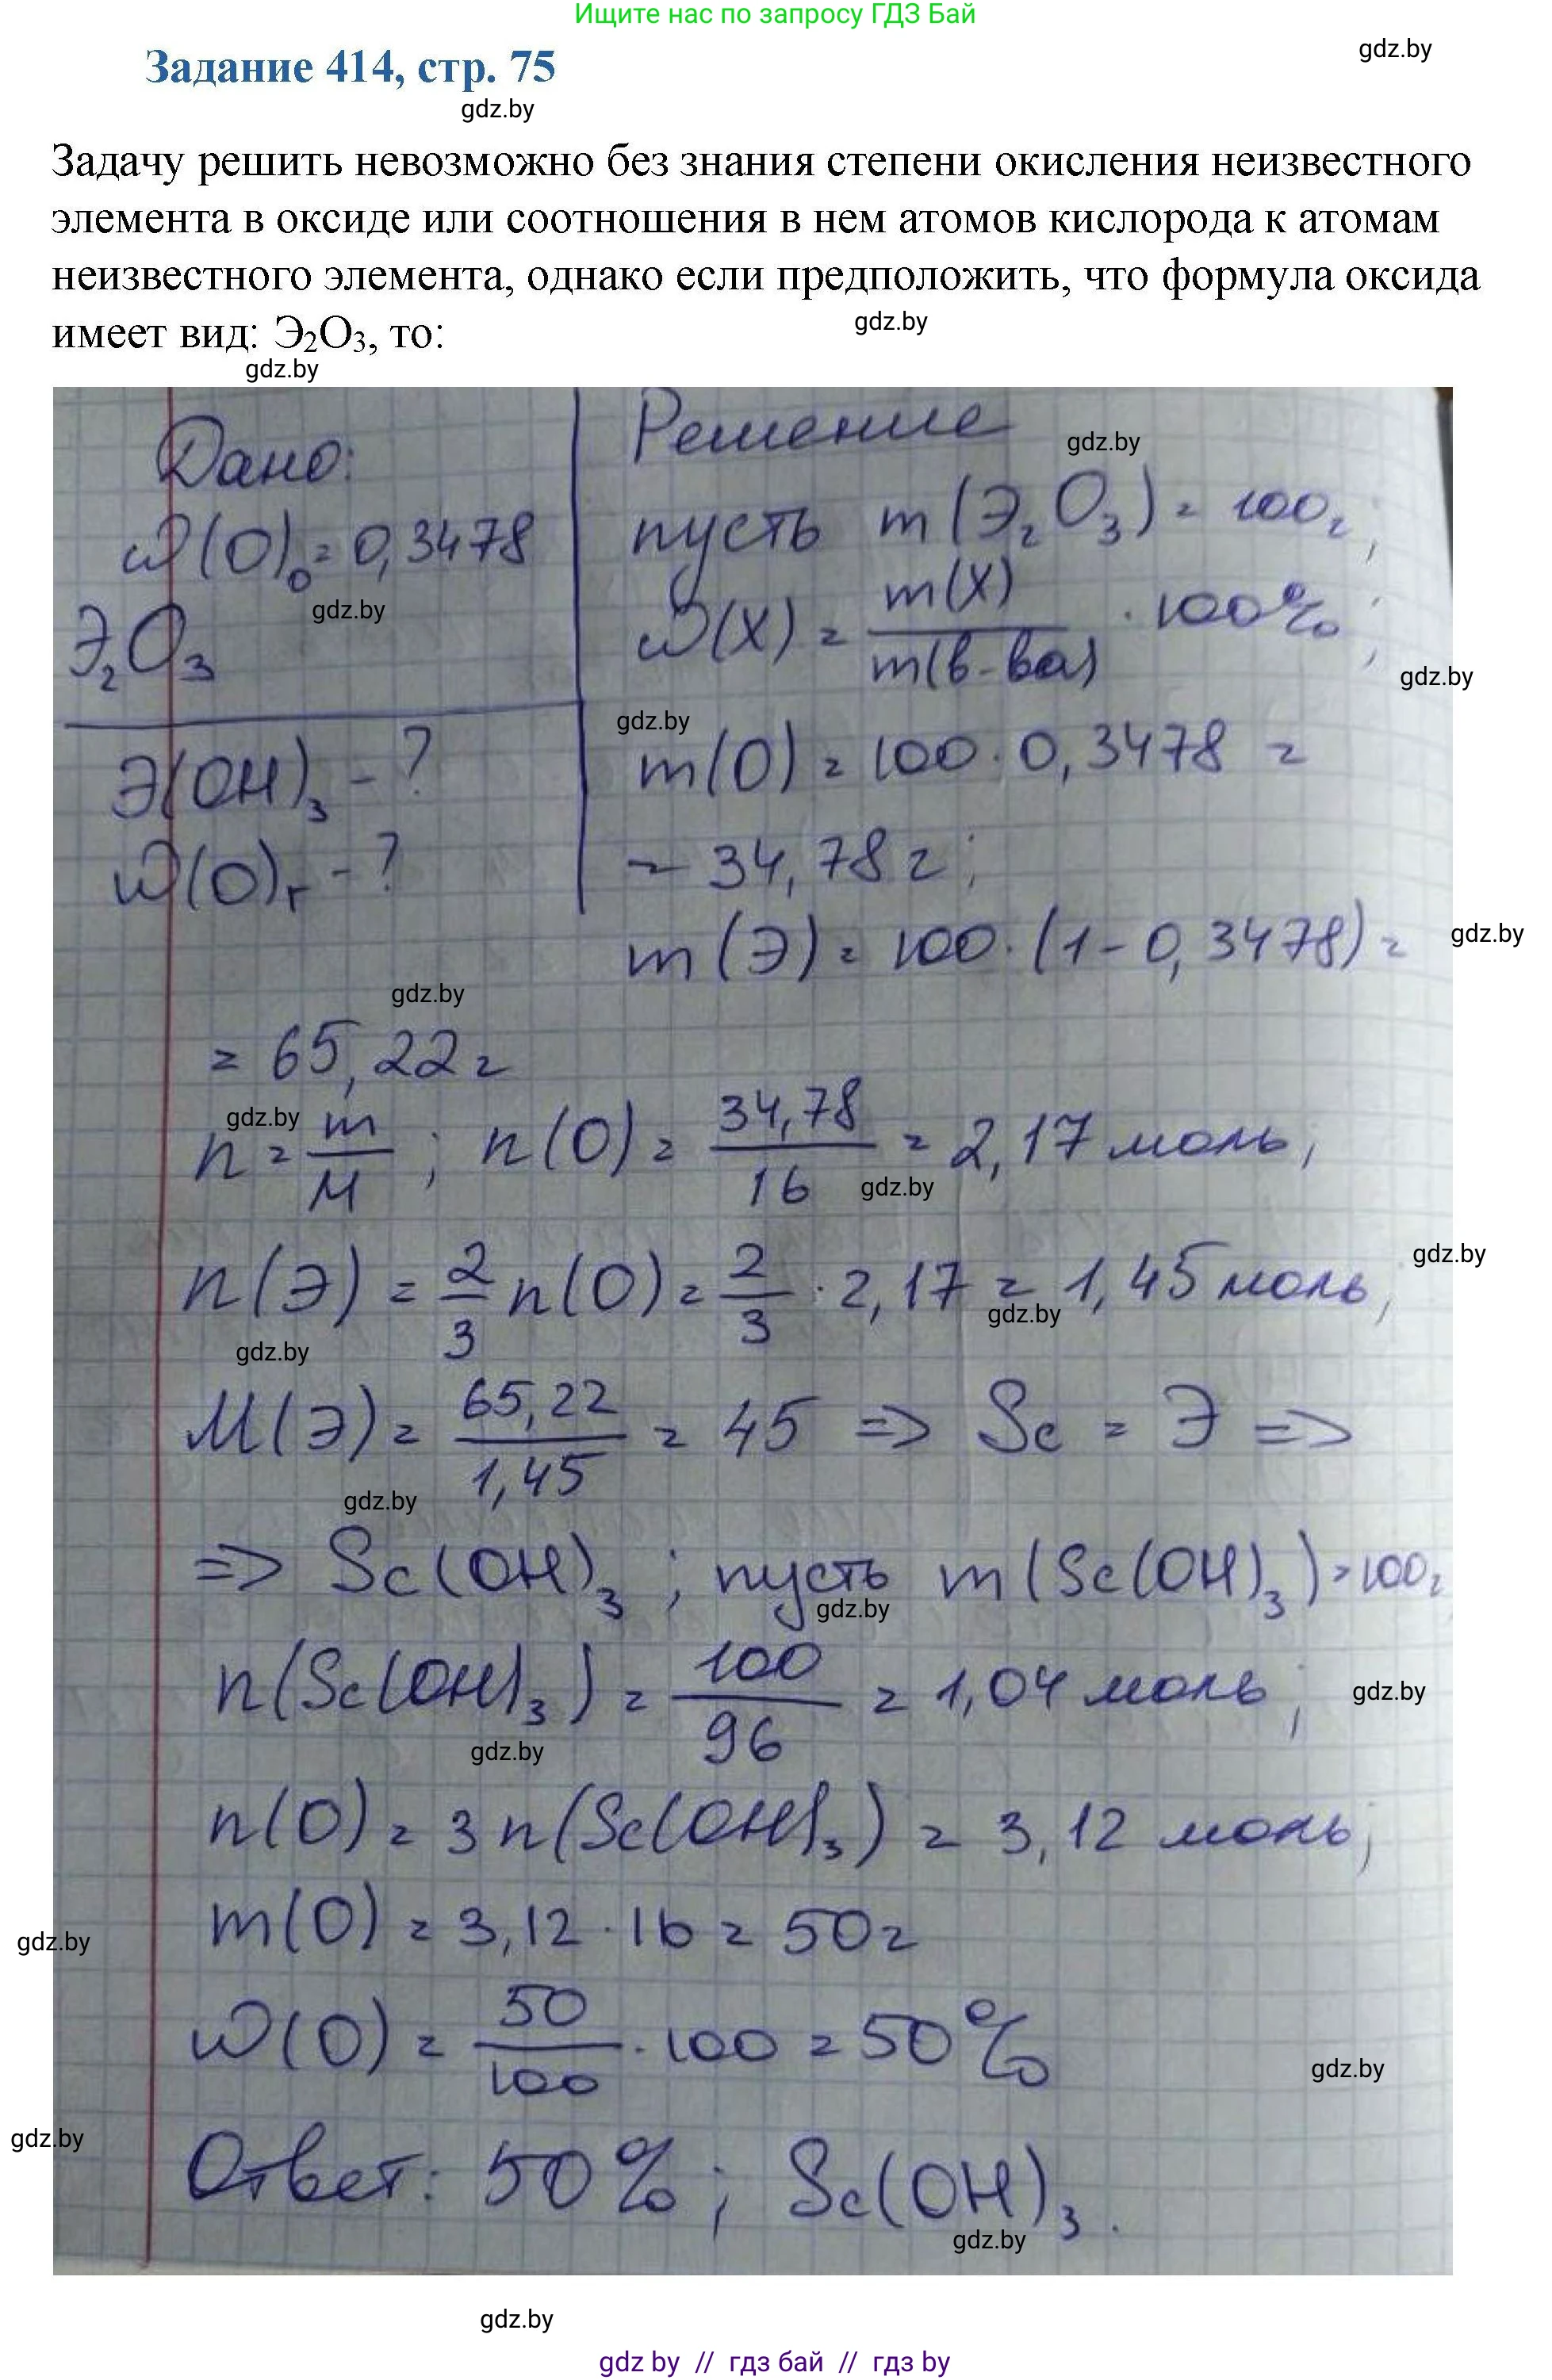 Ищите нас по запросу ГДЗ Бай
gdz.by
Задание 414, стр. 75
gdz.by
Задачу решить невозможно без знания степени окисления неизвестного
элемента в оксиде или соотношения в нем атомов кислорода к атомам
неизвестного элемента, однако если предположить, что формула оксида
имеет вид: Э₂О₃, то:
gdz.by
gdz.by
Дано:
ω(O)₀ = 0,3478
gdz.by
Э₂O₃
Э(OH)₃ - ?
ω(O)г - ?
Решение
gdz.by
пусть m(Э₂O₃) = 100г;
ω(X) = m(X) / m(в-ва) · 100%;
gdz.by
gdz.by
m(O) = 100 · 0,3478 =
= 34,78 г;
m(Э) = 100 · (1 - 0,3478) =
gdz.by
gdz.by
= 65,22 г
gdz.by
n = m / M ; n(O) = 34,78 / 16 = 2,17 моль;
gdz.by
n(Э) = 2/3 n(O) = 2/3 · 2,17 = 1,45 моль;
gdz.by
gdz.by
gdz.by
M(Э) = 65,22 / 1,45 = 45 => Sc = Э =>
gdz.by
=> Sc(OH)₃ ; пусть m(Sc(OH)₃) = 100г
gdz.by
n(Sc(OH)₃) = 100 / 96 = 1,04 моль;
gdz.by
gdz.by
n(O) = 3n(Sc(OH)₃) = 3,12 моль;
m(O) = 3,12 · 16 = 50г
gdz.by
ω(O) = 50 / 100 · 100 = 50%
gdz.by
gdz.by
Ответ: 50% ; Sc(OH)₃.
gdz.by
gdz.by
gdz by // гдз бай // гдз by